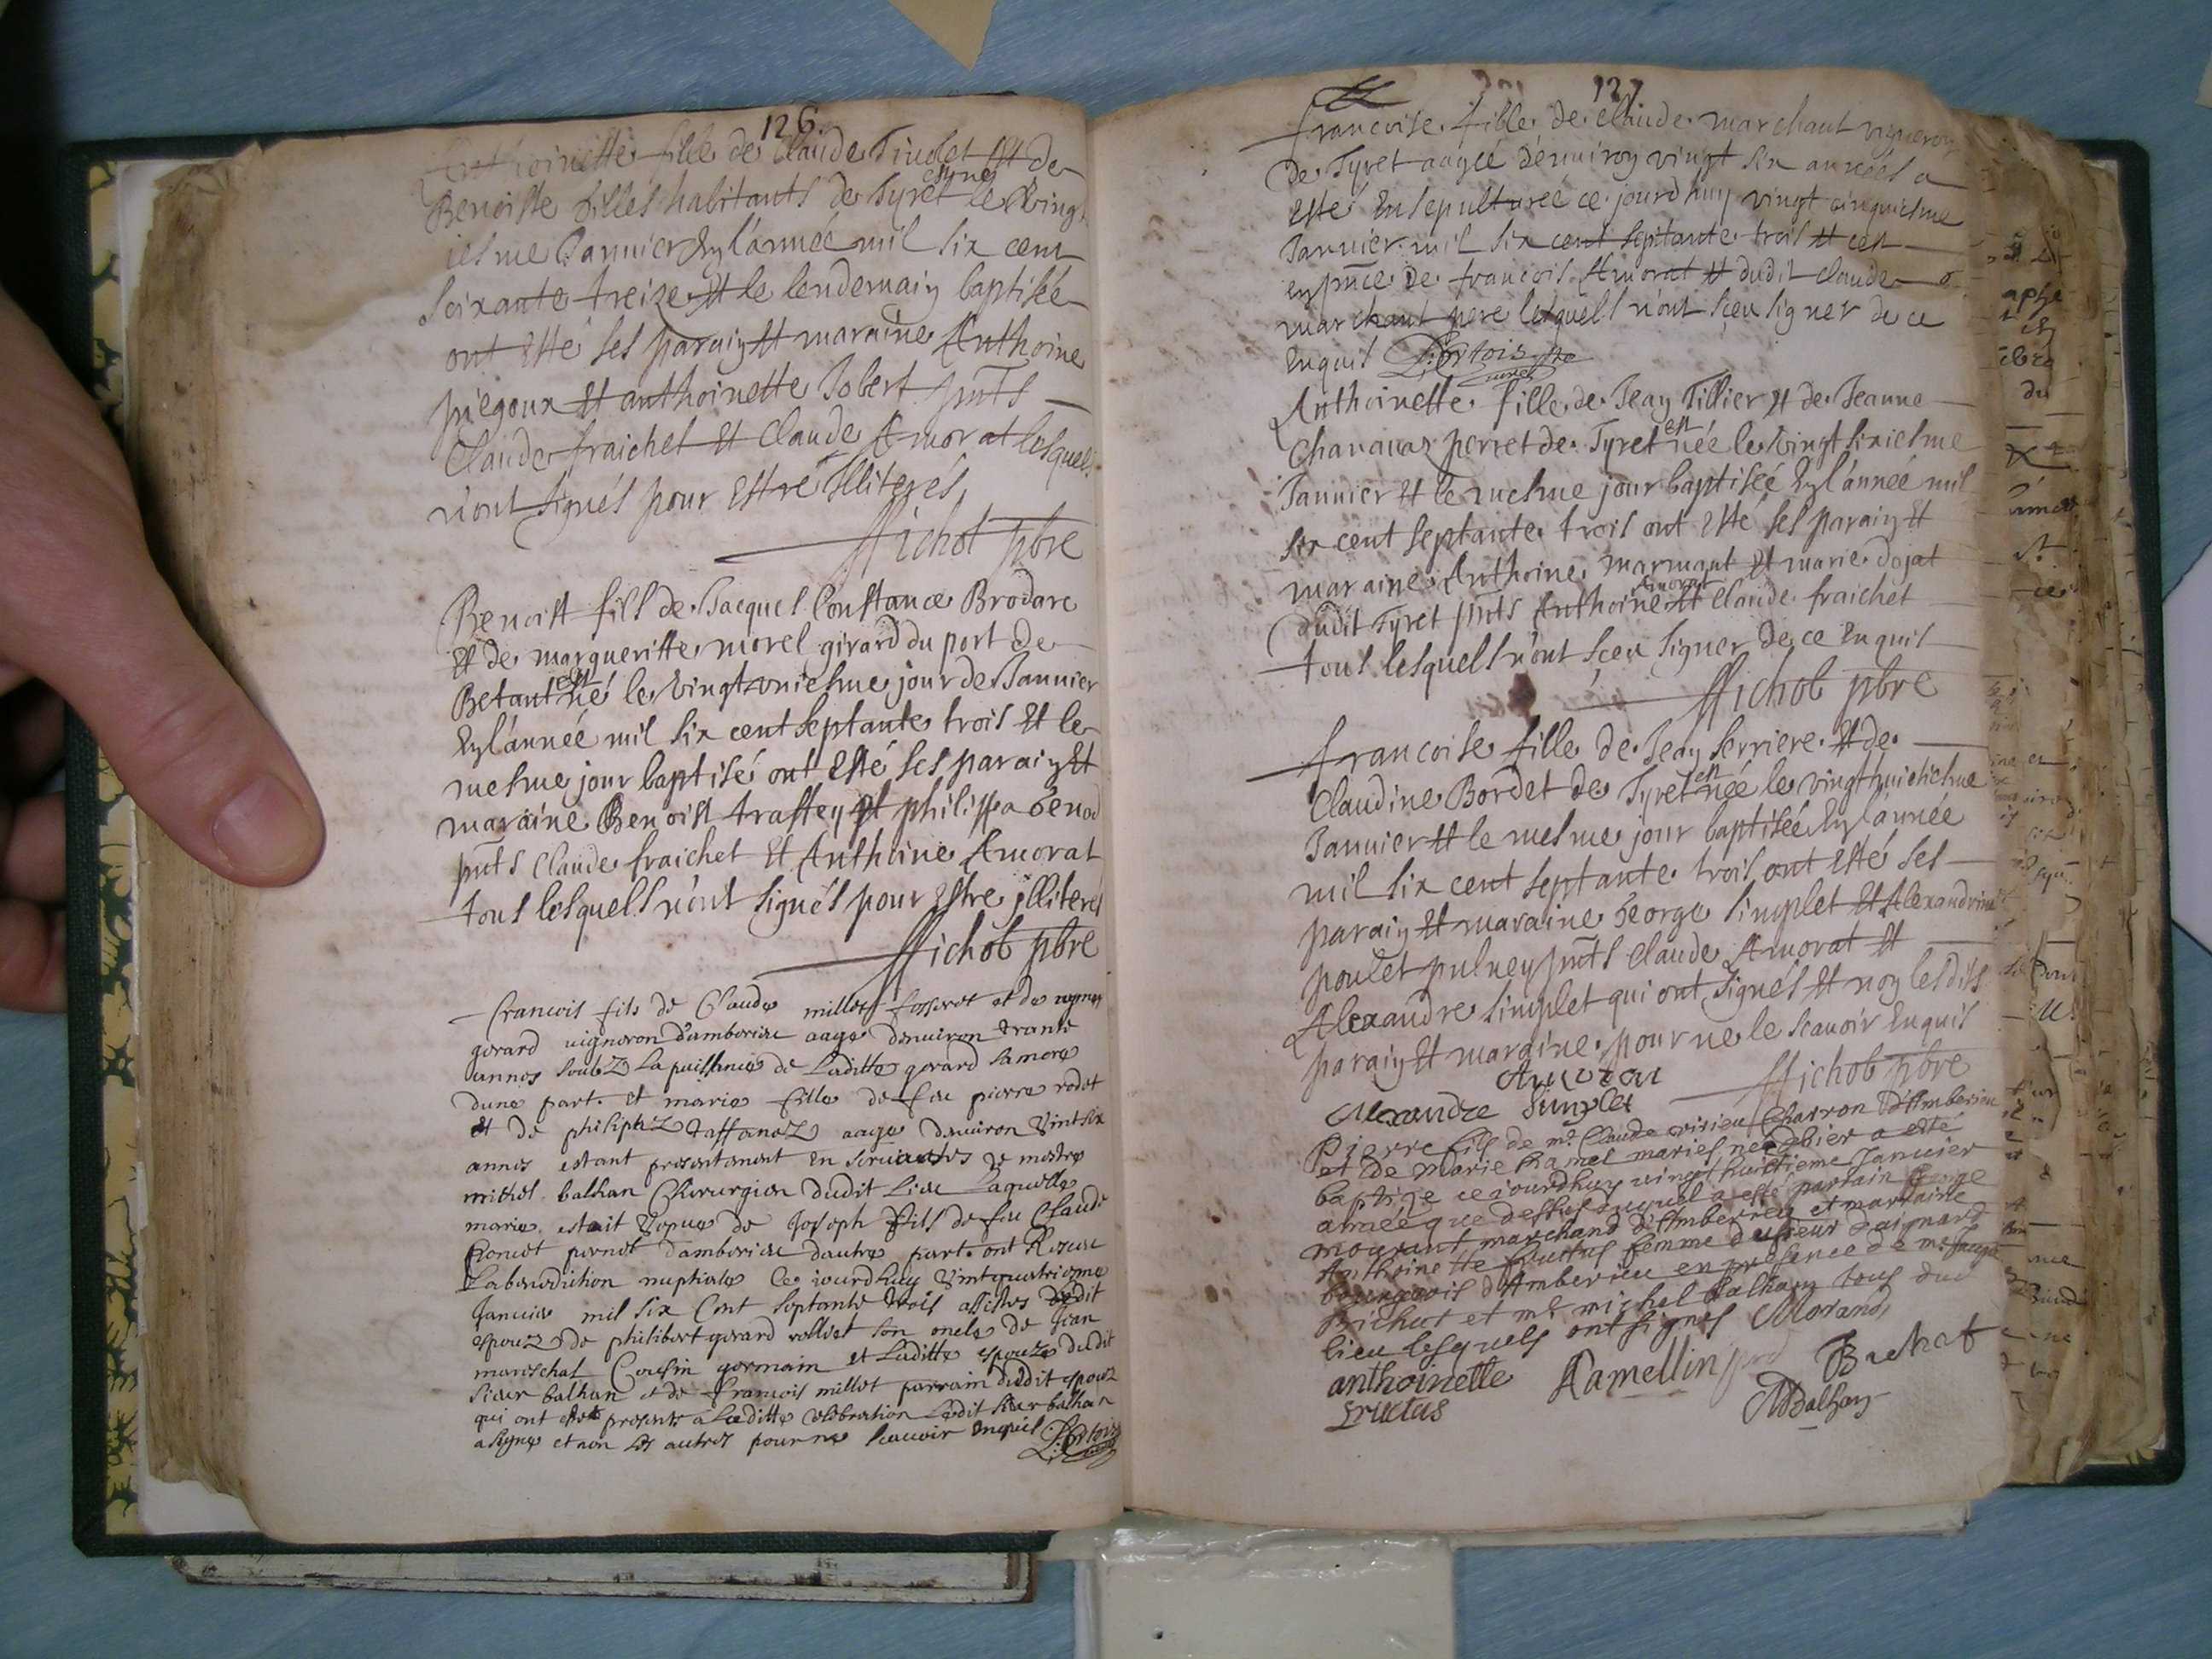 126
Anthoinette fille de Claude Tiudet Et de
Benoiste filles habitants de Tyret est née le Vingt
iesme Januier Enl'année mil six cent
soixante treize Et le lendemain baptiseé
ont Esté ses parain Et maraine Anthoine
piegoux Et anthoinette Jobert pnts
Claude fraichet Et Claude Amorat lesquels
n'ont signés pour Estre Illiterés
Michot pbre
Benoist fils de Jacques Constance Brodare
Et de margueritte morel girard du port de
Betant est né le Vingt vniesme jour de Januier
Enl'anneé mil six cent septante trois Et le
mesme jour baptisé ont Esté ses parain Et
maraine Benoist traffey Et philippa
pnts Claude fraichet Et Anthoine Amorat
tous lesquels n'ont signés pour Estre jlliterés
Michot pbre
francois fils de Claude millet fosseret et de
gerard vigneron d'amberieu aage denuiron trante
annes soubz la puissance de Laditte gerard sa mere
dune part. et marie fille de feu pierre rodet
et de philiphz taffanez aage denuiron Vintsix
annes estant presentement en seruices de mestre
michel balhan Chirurgien dudit Lieu Laquelle
marie estait Vepue de Joseph fils de feu Claude
pernet damberieu dautre part. ont Receu
La benediction nuptiale Ce iourdhuy Vintquatriesme
Januier mil six Cent septante trois assistes dudit
espouz de philibert gerard son oncle de Jean
mareschal Cousin germain et Laditte espouze dudit
sieur balhan et de francois millet parrain dudit espouz
qui ont esté presents a Laditte celebration Ledit sieur balhan
a signe et non les autres pour ne scauoir Enquis
127
francoise fille de claude marchant vigneron
de Tyret aageé d'enuiron vingt six anneés a
Esté Ensepultureé ce jourd'huy vingt cinquiesme
Januier mil six cent septante trois Et ces
en pnce de francois Amorat Et dudit claude
marchant pere lesquels n'ont sçeu signer de ce
Enquis
Anthoinette fille de Jean Tillier Et de Jeanne
Chanauaz perret de Tyret est née le Vingt sixiesme
Januier Et le mesme jour baptiseé Enl'anneé mil
six cent septante trois ont Esté ses parain Et
maraine Anthoine marmant Et marie dojat
dudit Tyret pnts Anthoine Amorat Et Claude fraichet
tous lesquels n'ont sçeu signer de ce Enquis
Michot pbre
francoise fille de Jean serriere Et de
Claudine Bordet de Tyret est neé le vingthuictiesme
Januier Et le mesme jour baptiseé Enl'année
mil six cent septante trois ont Esté ses
parain Et maraine George simplet Et Alexandrine
poulet pulney pnts Claude Amorat Et
Alexandre simplet qui ont signés Et non lesdits
parain Et maraine pour ne le scauoir Enquis
Michot pbre
Amorat
Alexandre Simplet
Pierre fils de mr Claude virieu Charron d'Amberieu
et de Marie hamel mariés né hier a esté
baptize ce jourdhuy vingthuictieme Januier
anneé que dessus duquel a esté partain George
mourant marchand d'Amberieu et marraine
Anthoinette fructus femme du sieur
bourgeois d'Amberieu en presence de mr
Brichat et mr michel Balhan tous dud
lieu lesquels ont signes Morand
anthoinette Ramellin Bachat
fructus MBalhan